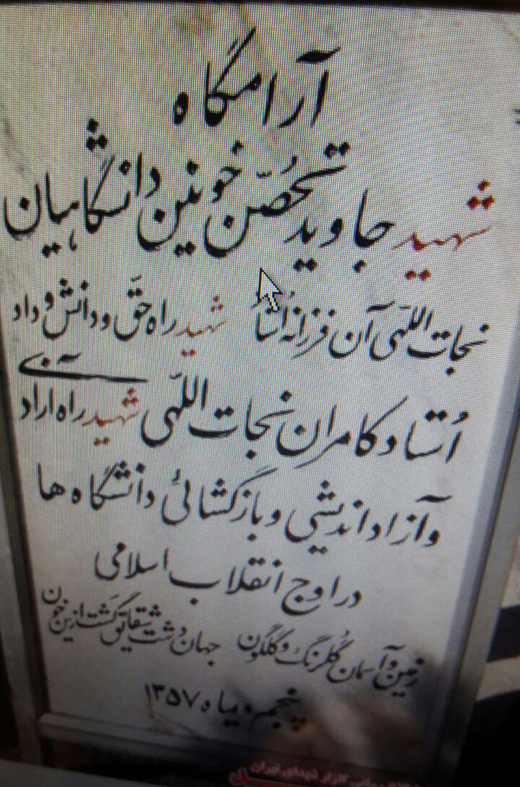 آرامگاه
شهید جاوید تحصّن خونین دانشگاهیان
نجات‌اللهی آن فرزانه اُستاد شهید راه حَق و دانش و داد
اُستاد کامران نجات‌اللّهی شهید راه آزادی
و آزاد اندیشی و بازگشائی دانشگاه ها
در اوج انقلاب اسلامی
زمین و آسمان گلرنگ و گلگون جهان دشت شقایق گشت ازین خون
پنجم دیماه ۱۳۵۷
گلزار شهدای تهران